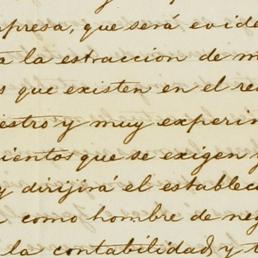 presa, que será evide
a la estraccion de m
s que existen en el re
estro y muy experim
ientos que se exigen
y dirijirá el establec
como hombre de neg
la contabilidad, y t